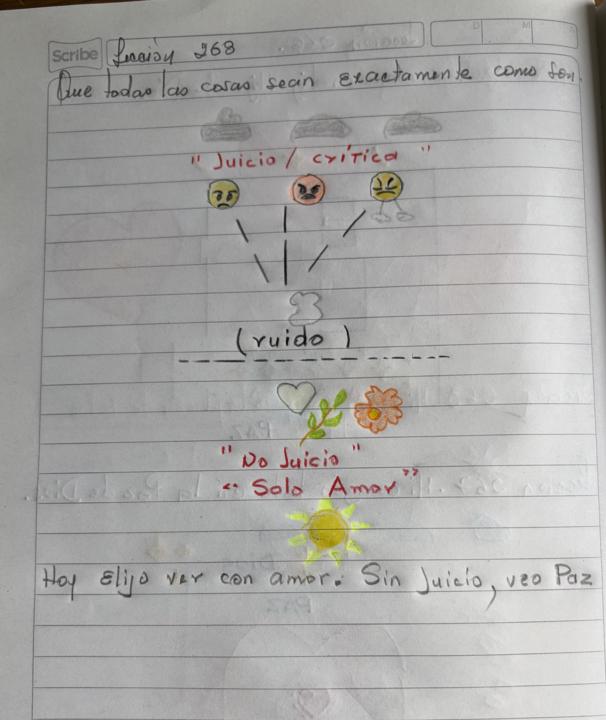 Scribe Lección 268
D M
Que todas las cosas sean exactamente como son.
" Juicio / crítica "
(ruido)
" No Juicio "
" Solo Amor "
Hoy Elijo ver con amor. Sin Juicio, veo Paz